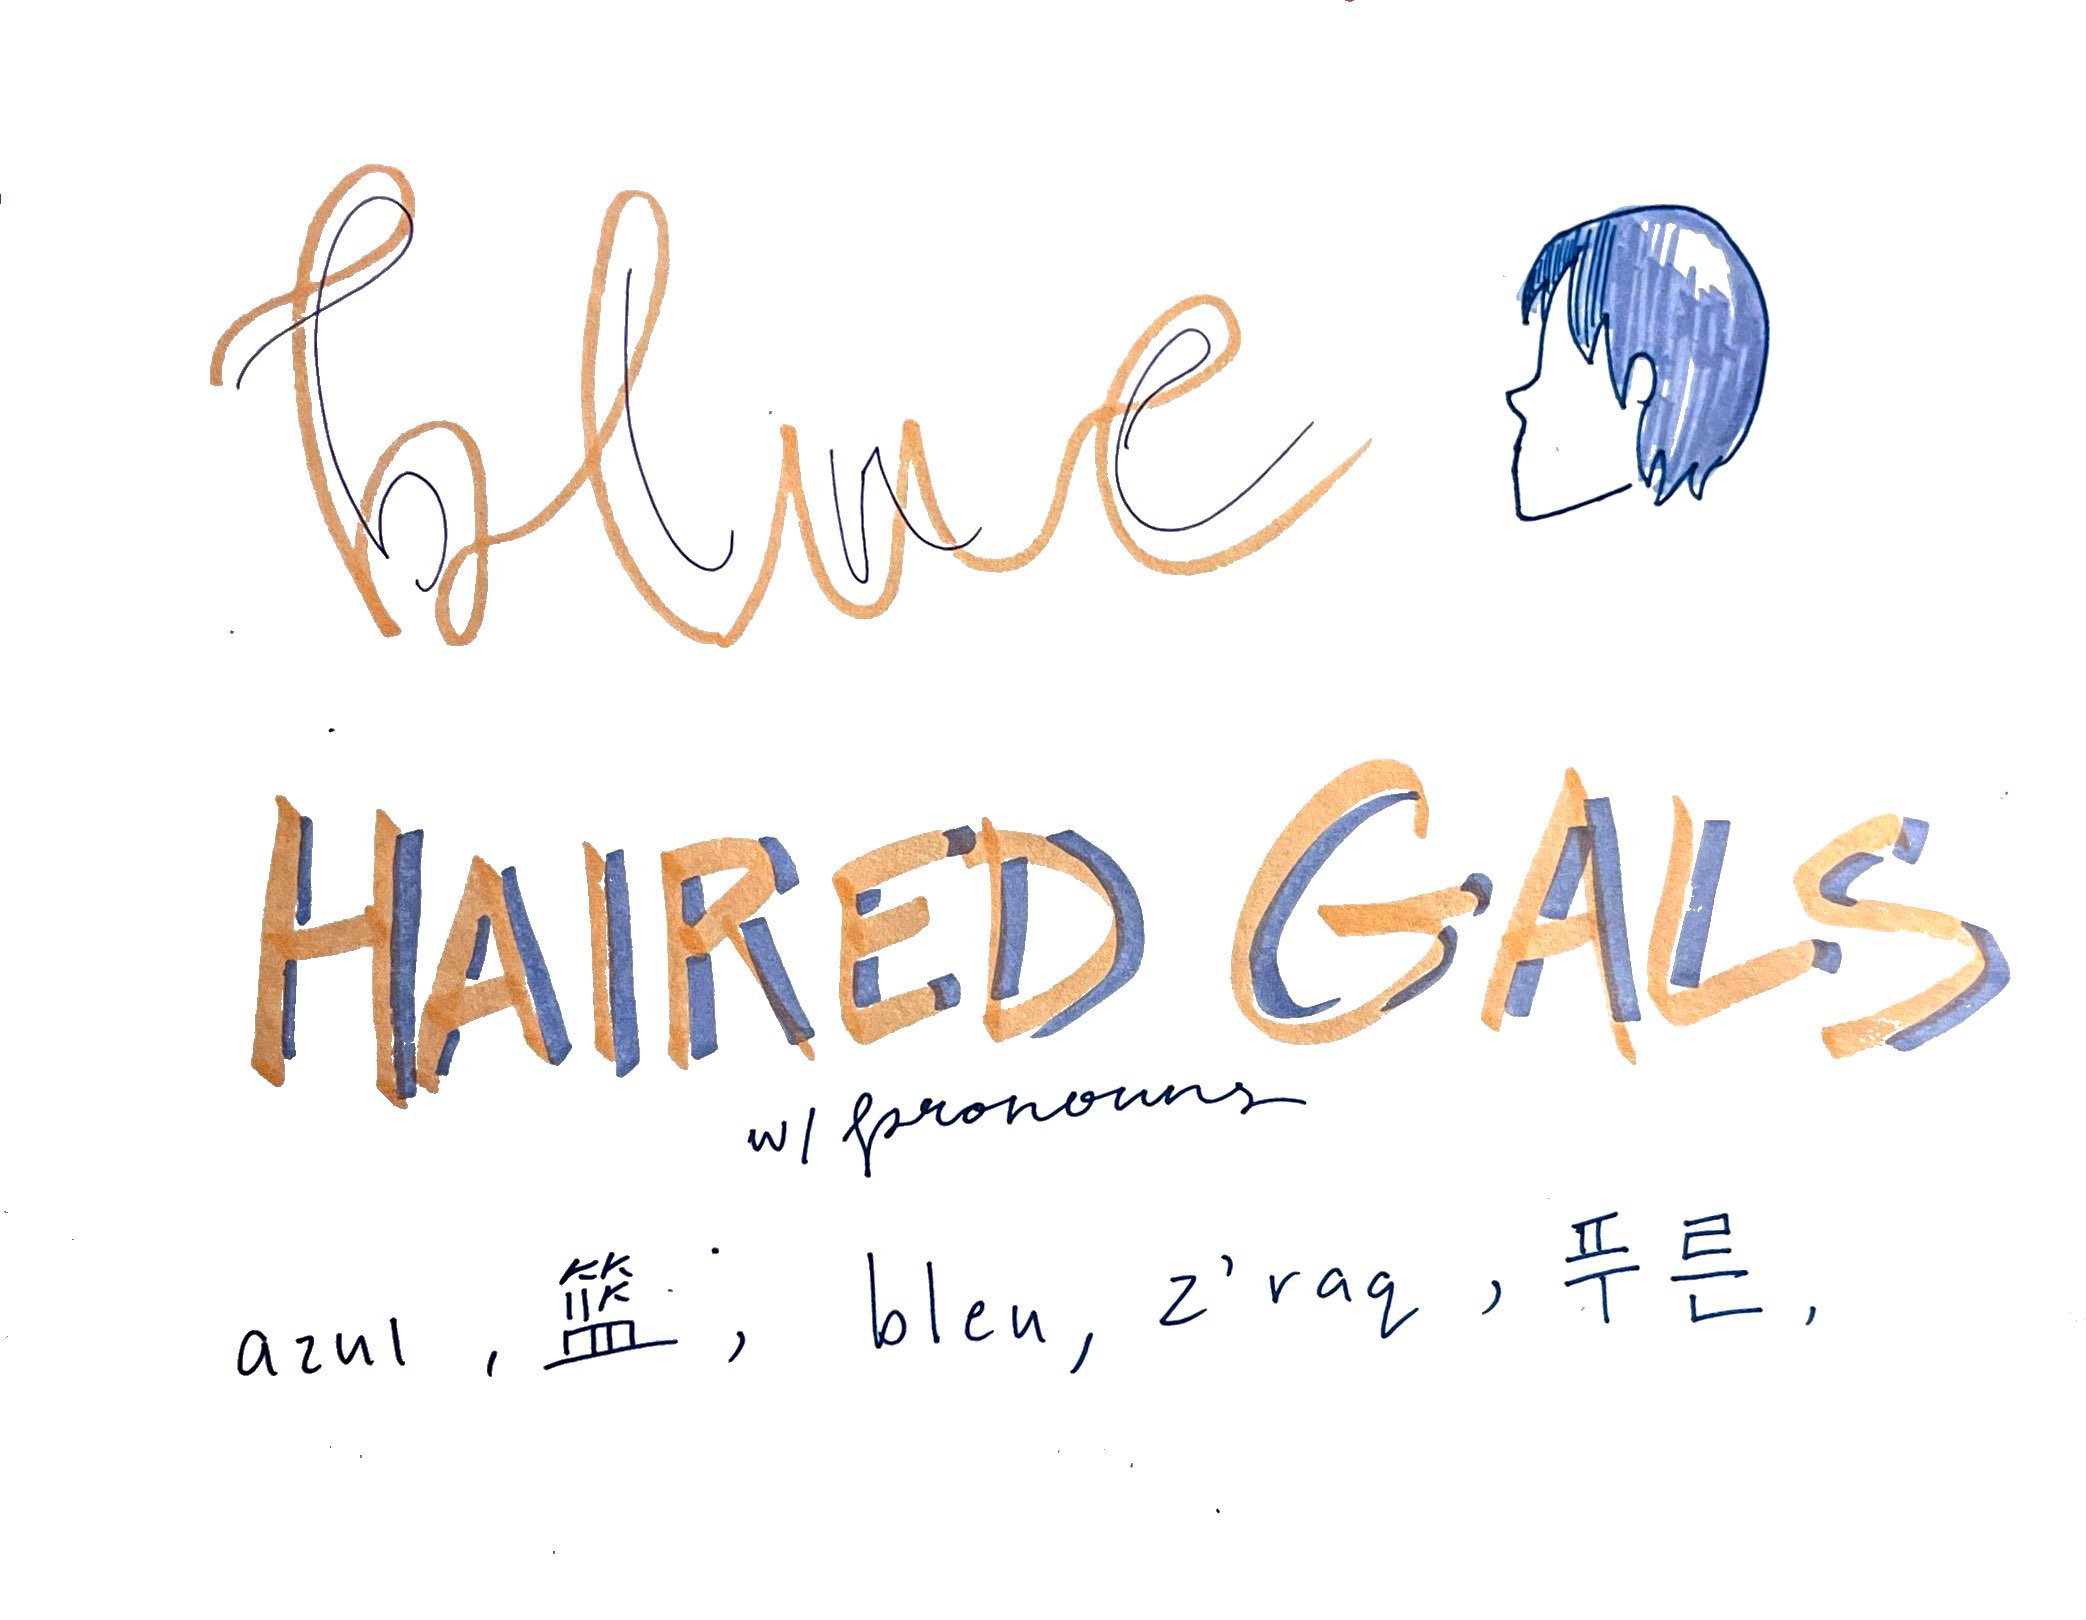 blue
HAIRED GALS
w/ pronouns
azul, 籃, bleu, z'raq, 푸른,